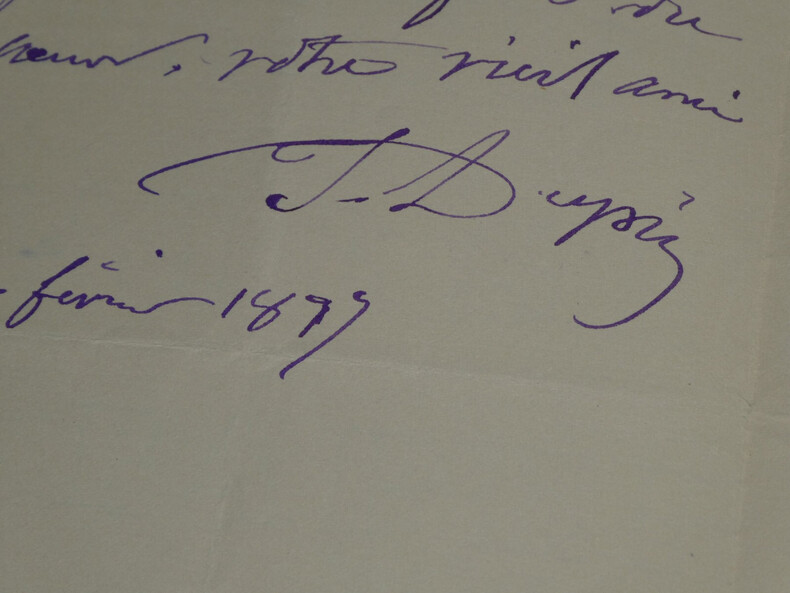 du
votre vieil ami
J. Dupin
février 1899